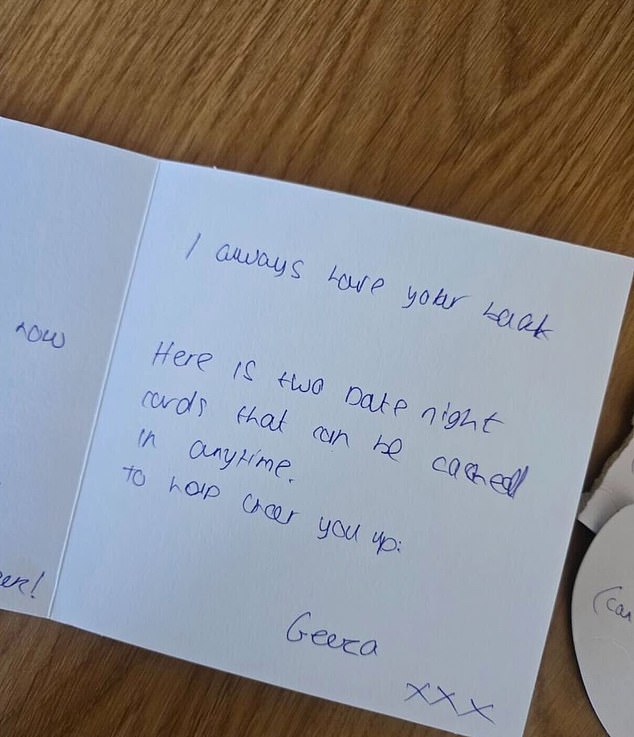 now
I always have your back
Here is two Date night
cards that can be cashed
in anytime.
To help cheer you up:
xxx
(can